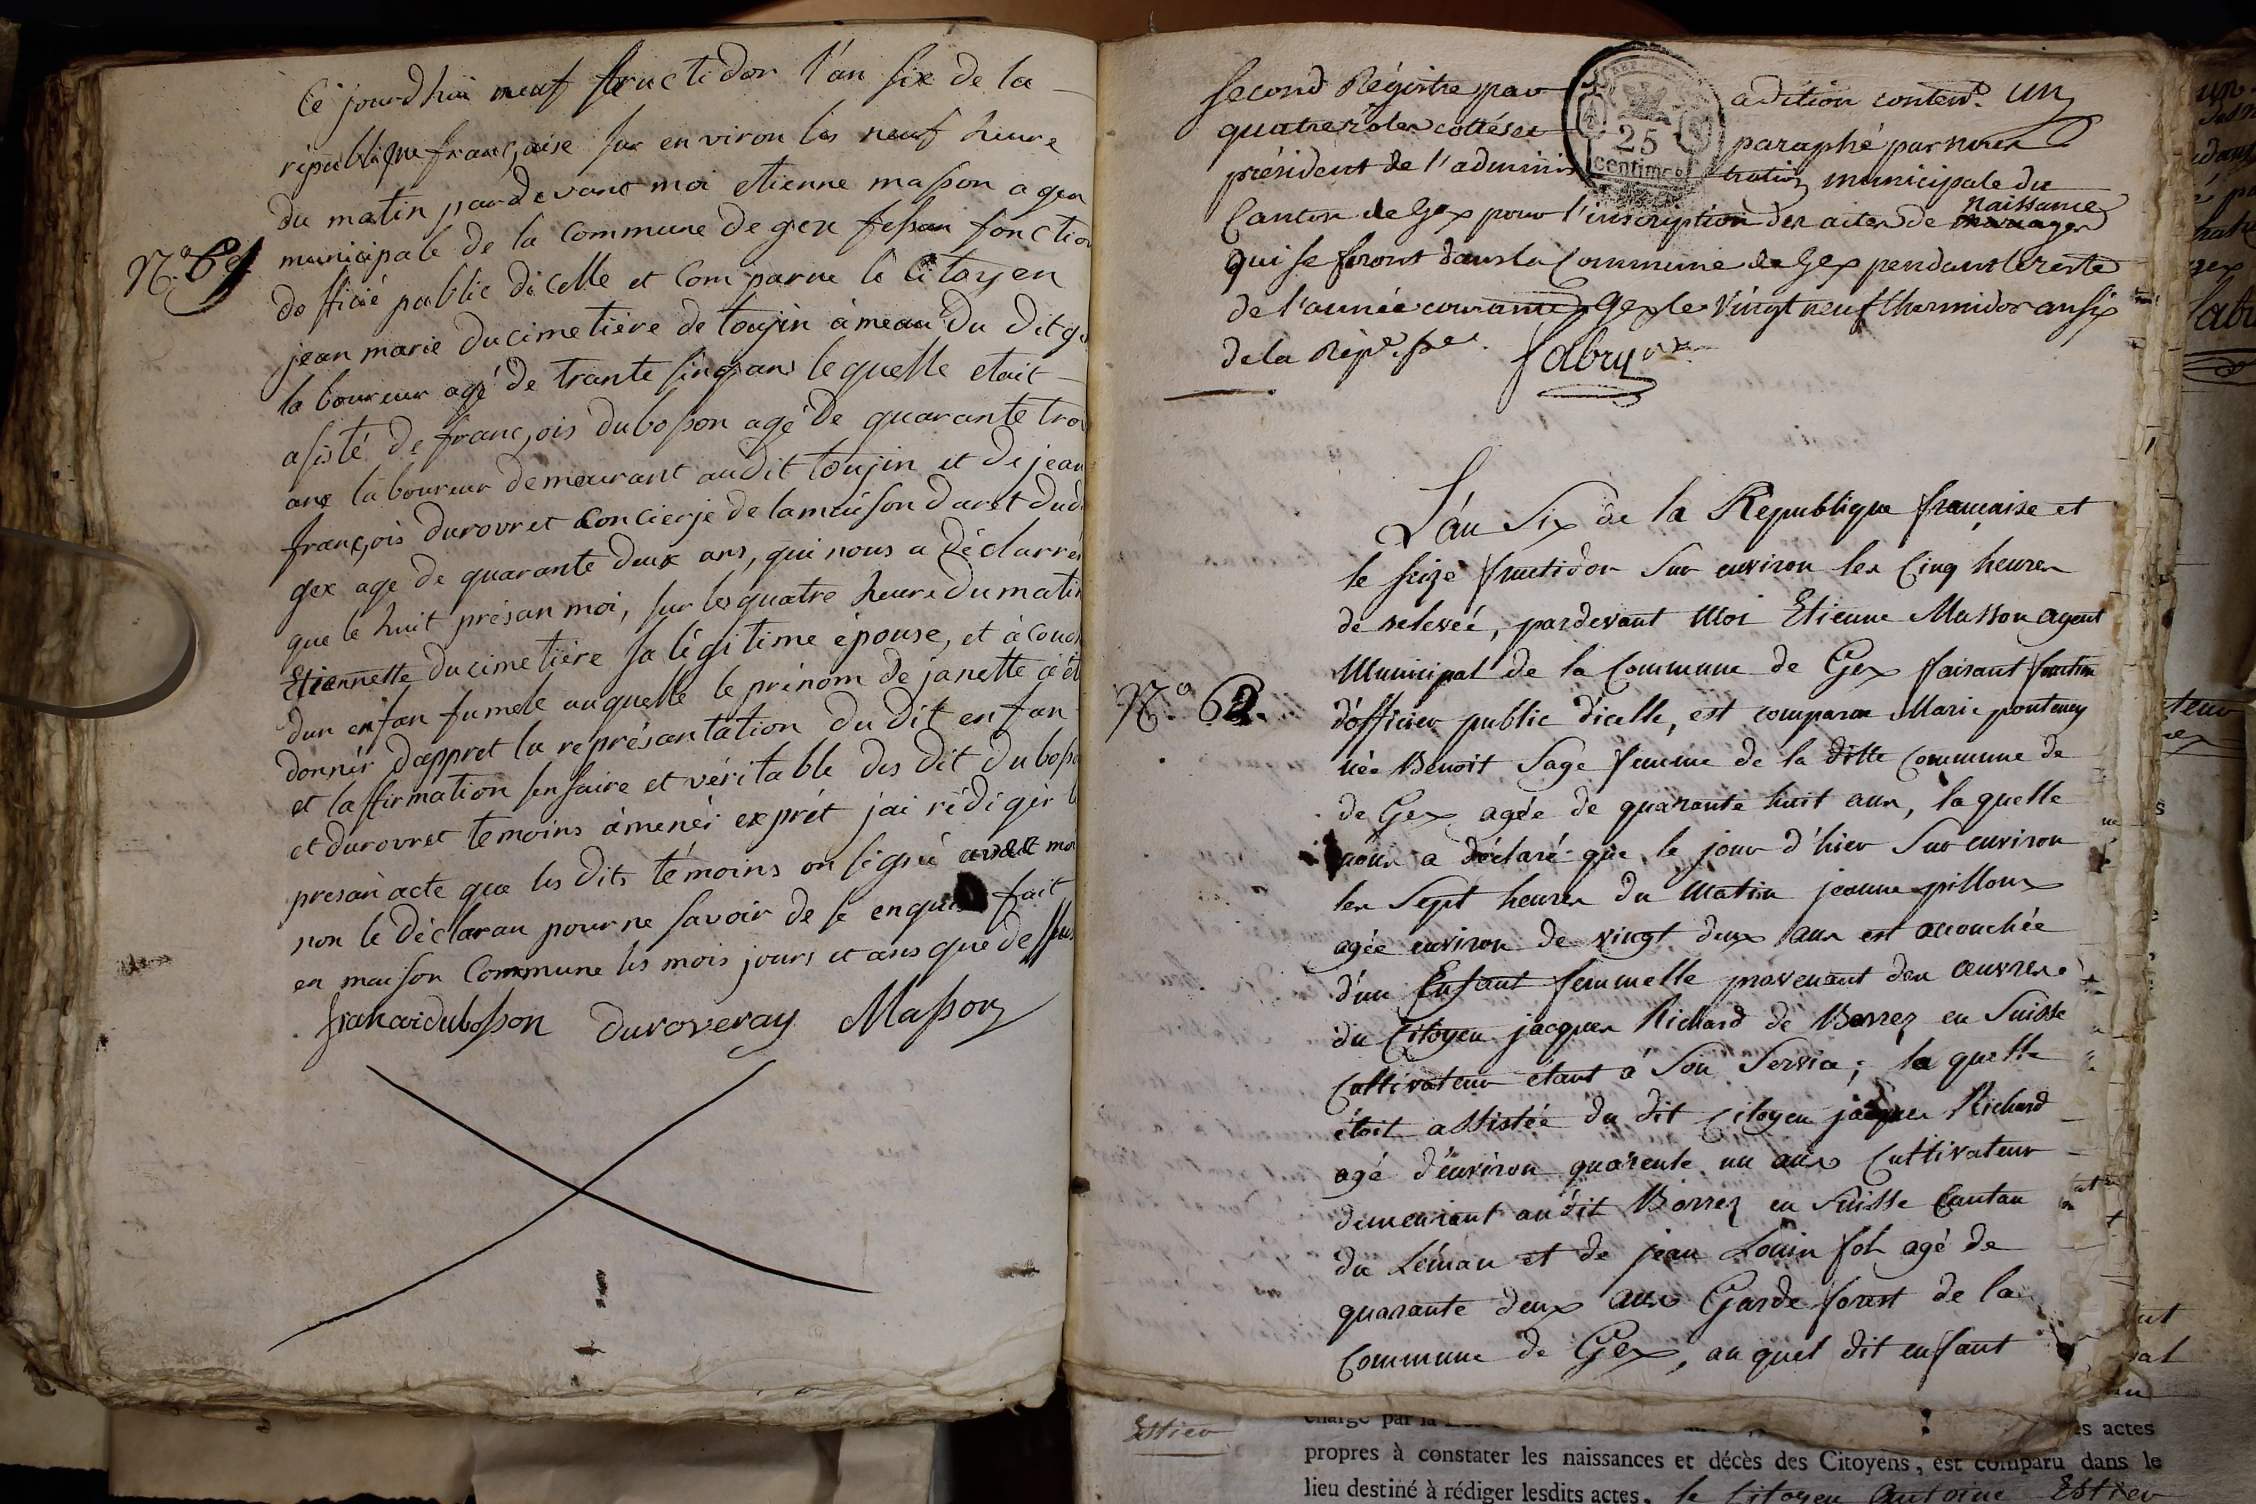 Ce jourdhui neuf fructidor l'an six de la
république française sur environ les neuf heure
du matin pardevant moi etienne masson agen
municipale de la commune de gex fesan fonction
N.º 61
doffisié public dicelle et Comparue le Citoyen
jean marie Ducimetière de toujin àmeau Du Dit g
laboureur agé de trante sinq ans lequelle etait
asisté de françois dubosson agé De quarante troi
ans laboureur demeurant audit toujin et De jean
françois durovret Concierje de la maison daret dud
gex age de quarante deux ans, qui nous a déclarré
que le huit présan moi, sur les quatre heure du matin
Etiennette Ducimetière sa légitime épouse, et àcouch
dun enfan fumele auquelle le prénom de janette à ét
donnér dappret la représantation du dit enfan
et laffirmation sensaire et véritable des dit dubosso
et durovret temoins àmenér exprèt jai rédigér l
presan acte que les dits témoins on signié avec moi
non le déclaran pour ne savoir de se enquis fait
en maison Commune les mois jours et ans que dessus
francoi dubosson duroveray Masson
second Régistre par adition conten.t un
quatre rôles cottés et paraphé par nous
REP. FRA.
25
centimes
président de l'adminis tration municipale du
Canton de Gex pour l'inscription des actes de mariages naissances
qui se feront dans la Commune de Gex pendant le reste
de l'année courante, Gex le vingt neuf thermidor an six
de la Rép.e f.se. fabry
L'an Six de la République française et
le seize fructidor Sur environ les Cinq heures
de relevée, pardevant Moi Etienne Masson agent
Municipal de la Commune de Gex faisant fonction
N.º 62.
d'officier public dicelle, est comparue Marie pouteney
née Benoit Sage femme de la ditte Commune de
de Gex agée de quarante huit ans, la quelle
nous a déclaré que le jour d'hier Sur environ
les Sept heures du Matin jeanne pilloux
agée environ de vingt deux ans est accouchée
d'un Enfant femmelle provenant des œuvres
du Citoyen jacques Richard de Borrez en Suisse
Cultivateur étant à Son Service; la quelle
étoit assistée du dit Citoyen jacques Richard
agé d'environ quarente un ans Cultivateur
demeurant au dit Borrez en Suisse Canton
du Léman et de jean Louis fol agé de
quarante deux ans Garde forest de la
Commune de Gex, au quel dit enfant
Estier
chargé par la
es actes
propres à constater les naissances et décès des Citoyens, est comparu dans le
lieu destiné à rédiger lesdits actes, le Citoyen Antoine Estier